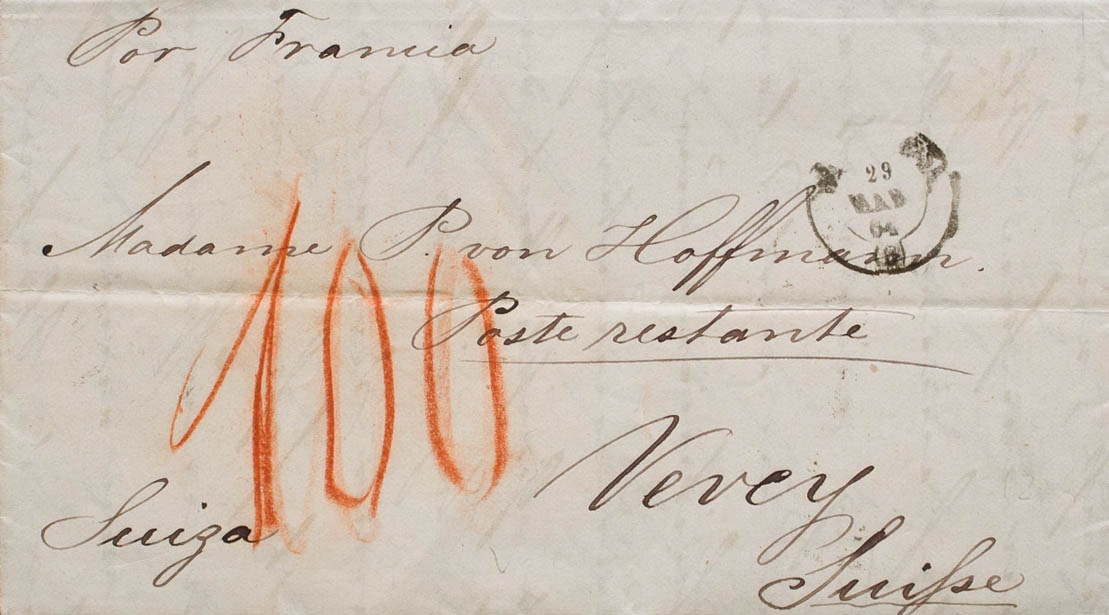 Por Francia
29
MAR
64
Madame P. von Hoffmann.
Poste restante
100
Vevey
Suiza
Suiſse